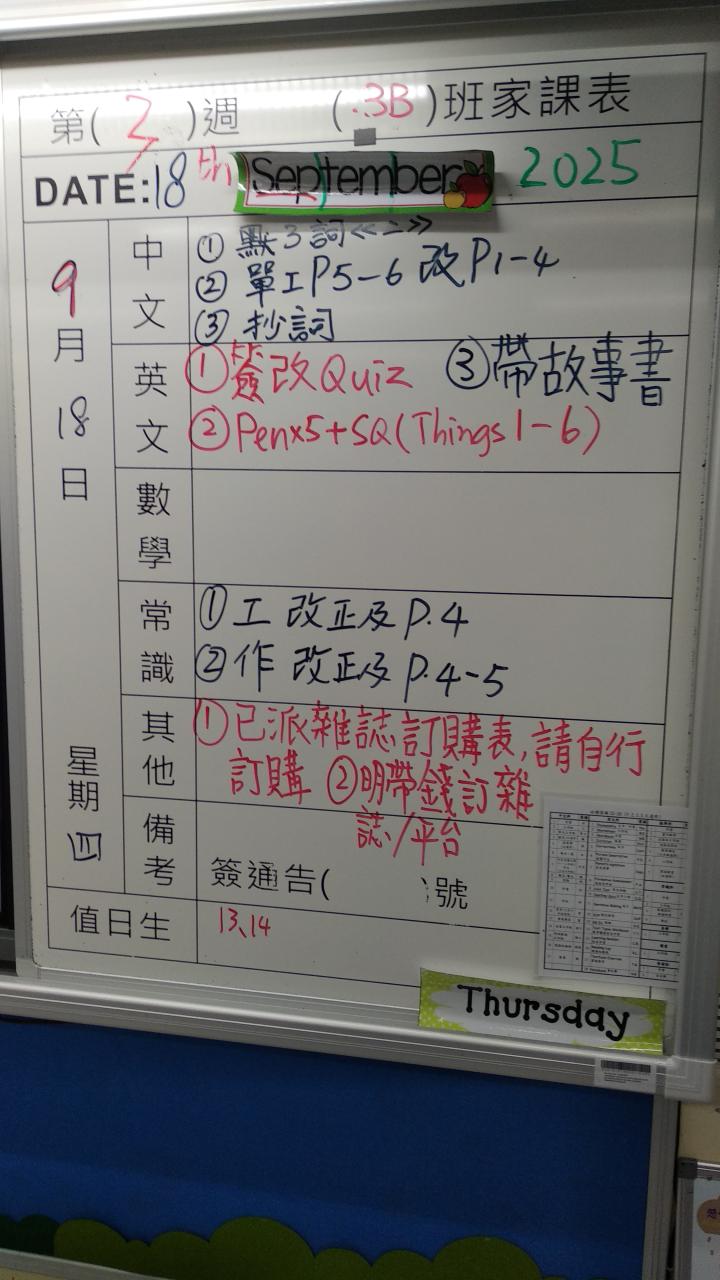 第( 2 )週 ( 3B )班家課表
DATE: 18th September 2025
9月18日
星期四
中文
① 默3詞《二》
② 單工P5-6 改P1-4
③ 抄詞
英文
①簽改Quiz ③帶故事書
②Penx5+SQ(Things1-6)
數學
常識
①工 改正及P.4
②作 改正及P.4-5
其他
①已派雜誌訂購表,請自行
訂購 ②明帶錢訂雜
誌/平台
備考
簽通告( )號
值日生
13、14
Thursday